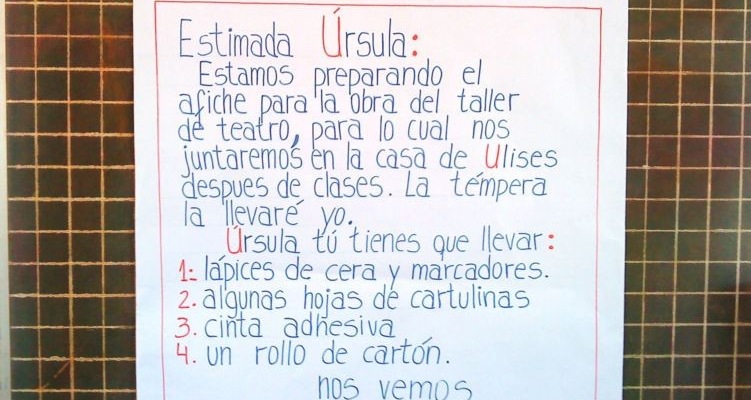 Estimada Úrsula:
Estamos preparando el
afiche para la obra del taller
de teatro, para lo cual nos
juntaremos en la casa de Ulises
despues de clases. La témpera
la llevaré yo.
Úrsula tú tienes que llevar:
1: lápices de cera y marcadores.
2. algunas hojas de cartulinas
3. cinta adhesiva
4. un rollo de cartón.
nos vemos